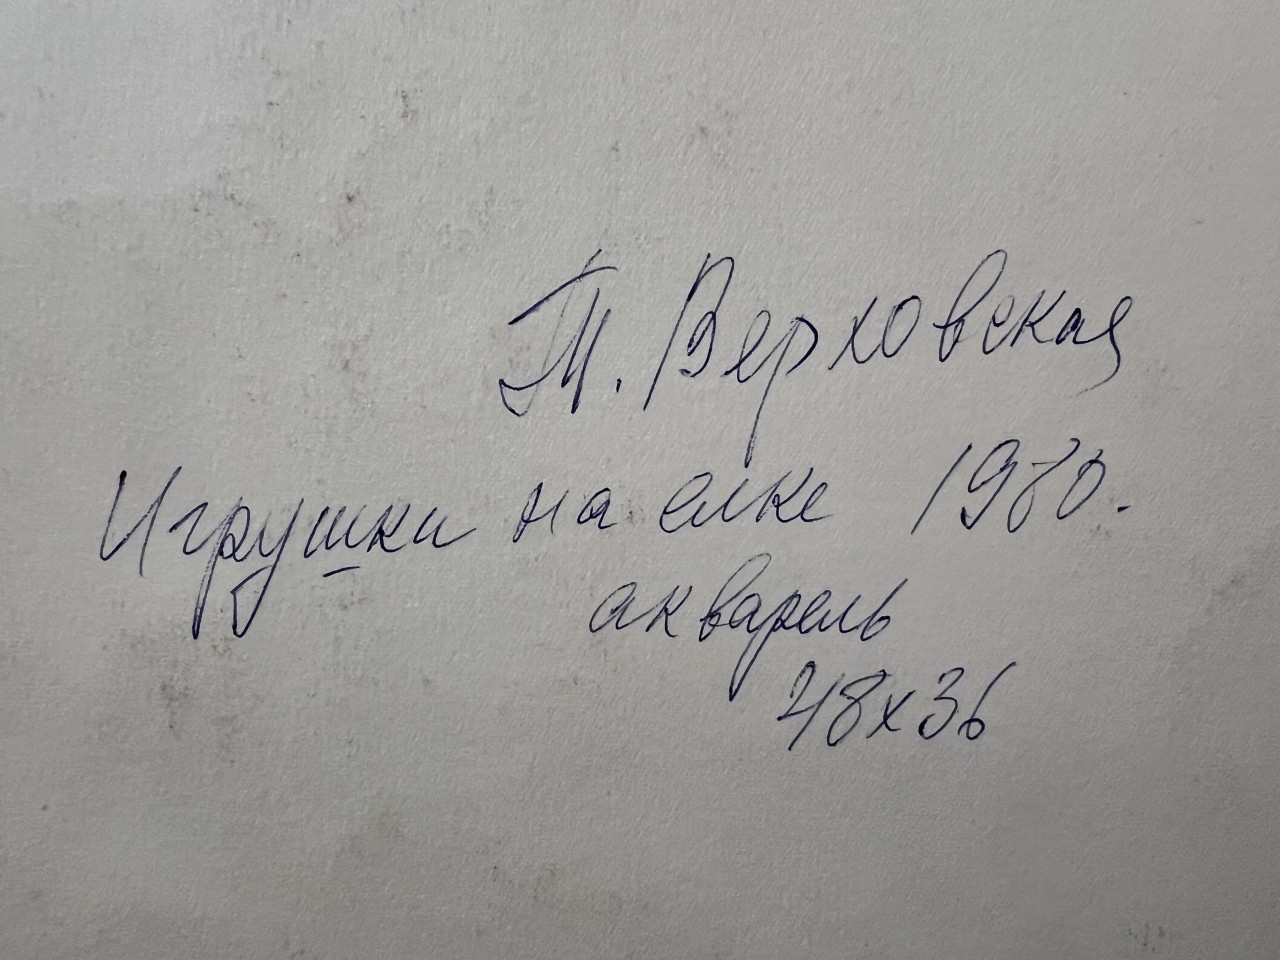 Т. Верховская
Игрушки на елке 1980.
акварель
48х36